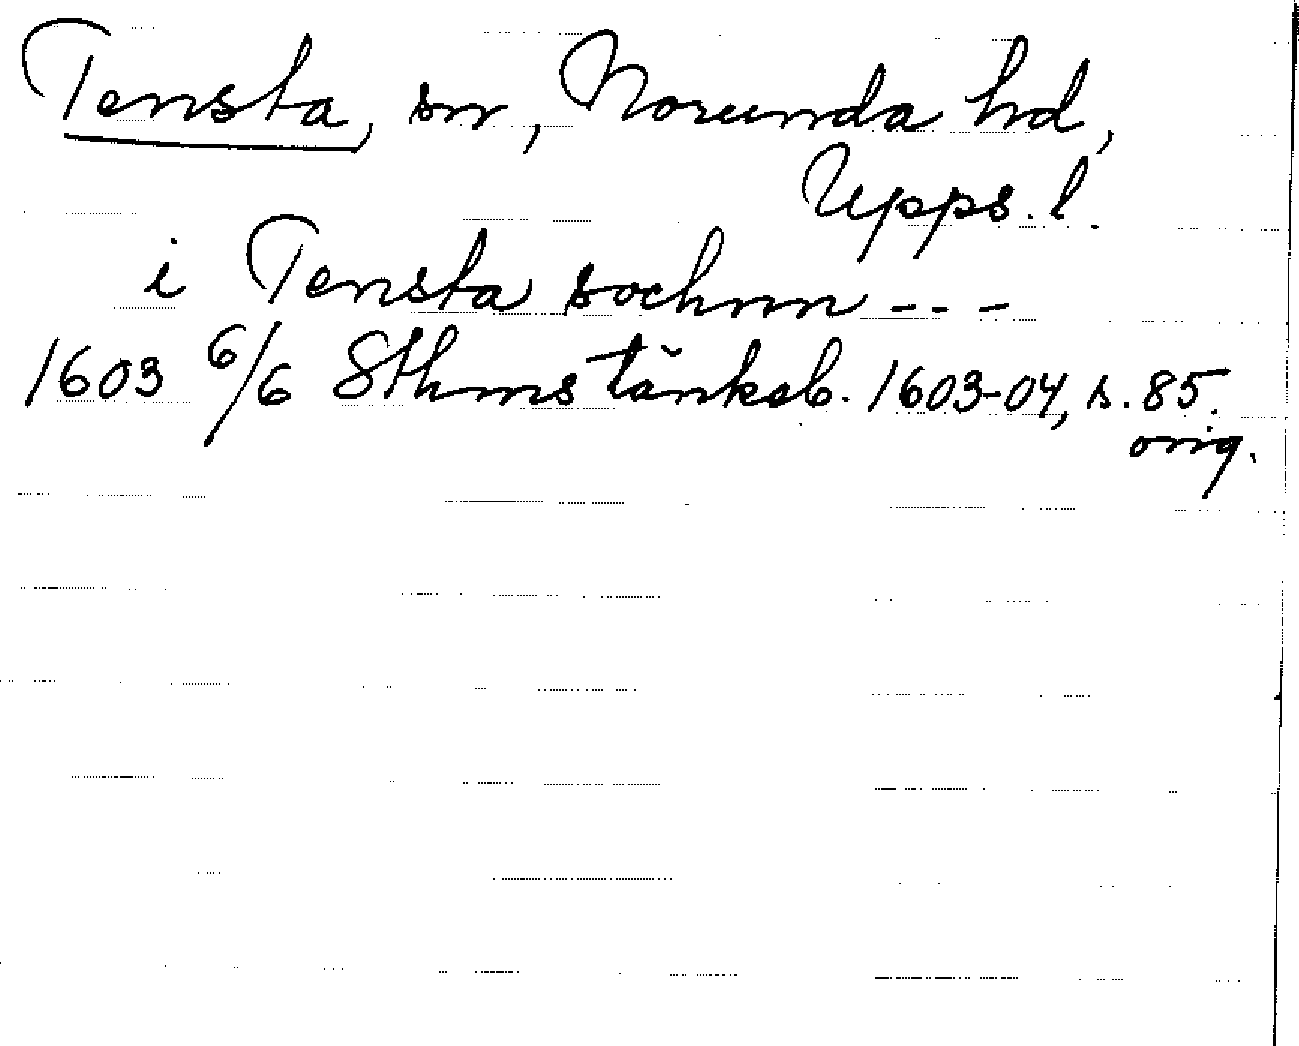 Tensta, sn, Norunda hd,
Upps. l.
i Tensta sochnn ---
1603 6/6 Sthms tänkeb. 1603-04, s. 85.
orig.